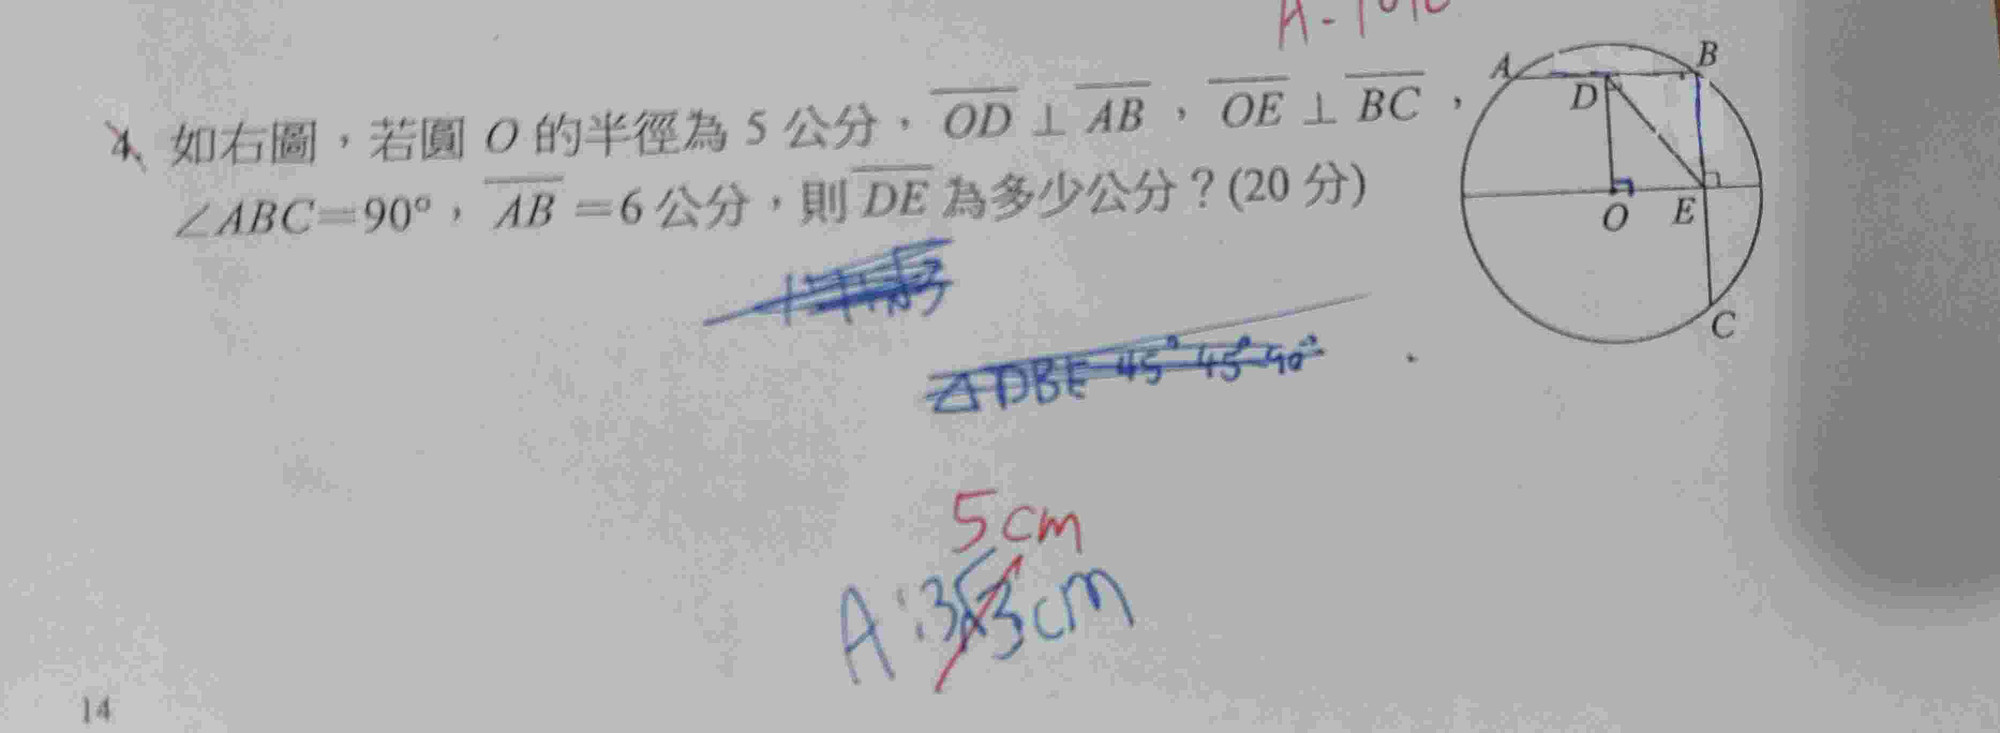 4. 如右圖,若圓 O 的半徑為 5 公分,OD ⊥ AB,OE ⊥ BC,
∠ABC=90°,AB=6 公分,則 DE 為多少公分?(20 分)
A
B
D
O
E
C
△DBE 45° 45° 90°
5cm
A:3√3cm
14